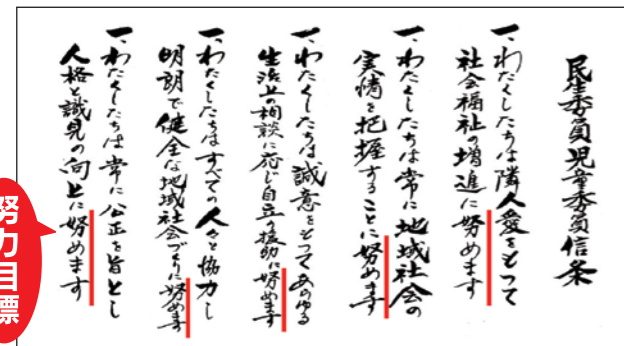 民生委員児童委員信条
一、わたくしたちは隣人愛をもって
社会福祉の増進に努めます
一、わたくしたちは常に地域社会の
実情を把握することに努めます
一、わたくしたちは誠意をもってあらゆる
生活上の相談に応じ自立の援助に努めます
一、わたくしたちはすべての人々と協力し
明朗で健全な地域社会づくりに努めます
一、わたくしたちは常に公正を旨とし
人格と識見の向上に努めます
努力目標